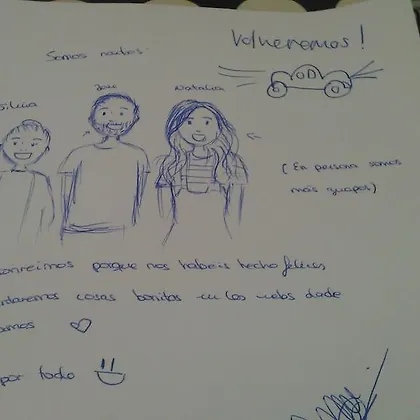 Volveremos!
Somos nosotros:
Jose
Natalia
(En persona somos
más guapos)
sonreimos porque nos habéis hecho felices
cosas bonitas en las webs dade
por todo